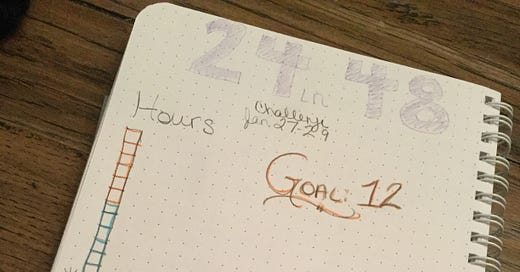 24 in 48
Challenge
Hours
Jan. 27-29
Goal: 12